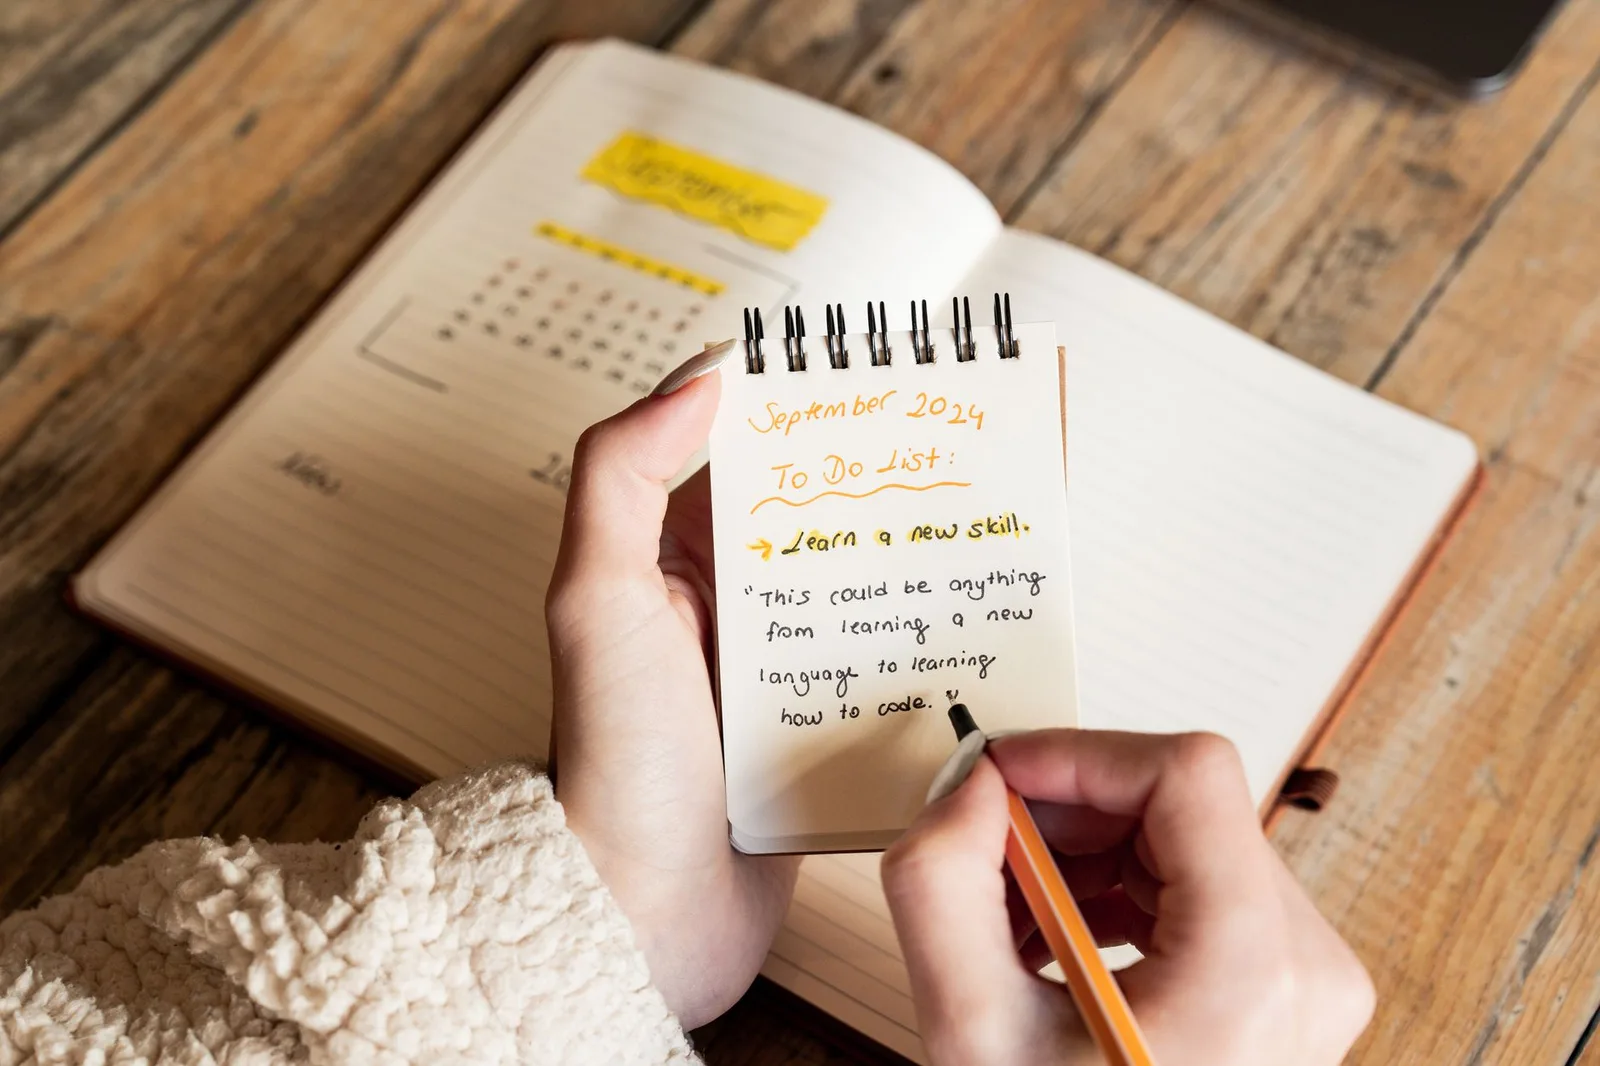 September
September 2024
To Do List:
→ Learn a new skill.
"This could be anything
from learning a new
language to learning
how to code. "